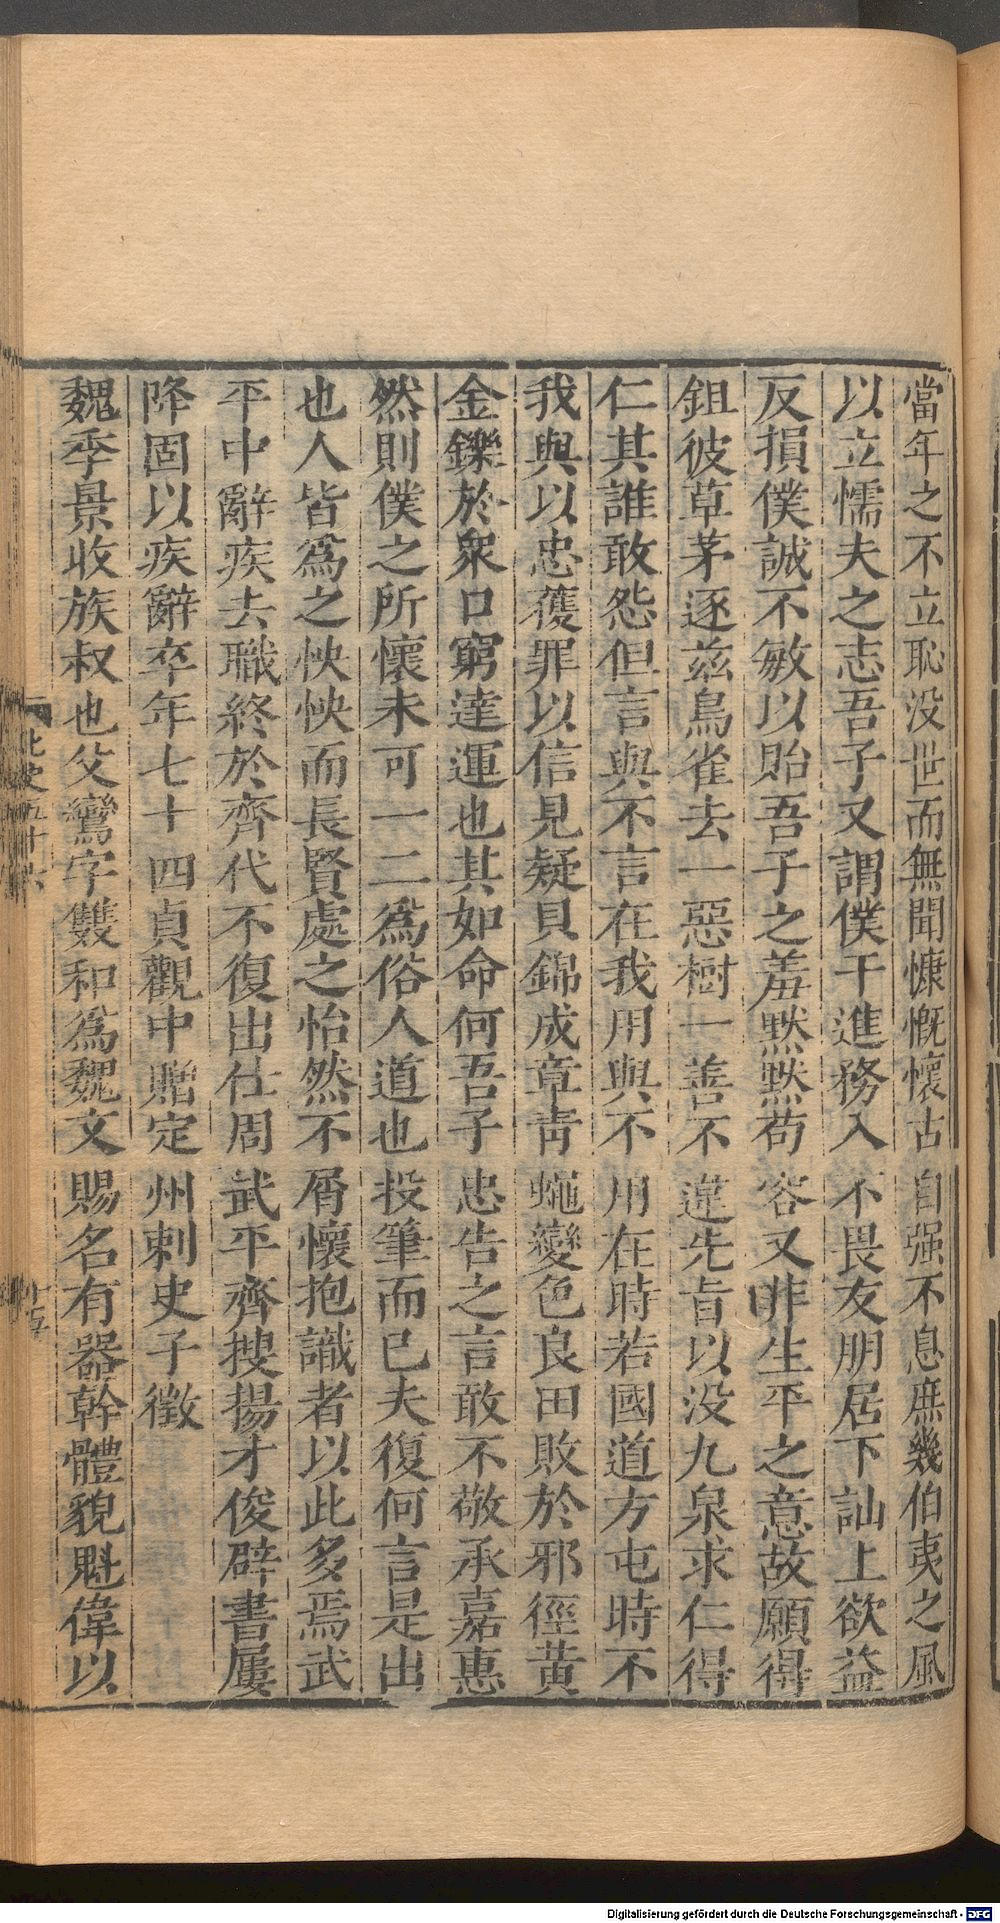 當年之不立恥没世而無聞慷慨懷古自强不息庶幾伯夷之風
以立懦夫之志吾子又謂僕干進務入不畏友朋居下訕上欲益
反損僕誠不敏以貽吾子之羞黙黙苟容又非生平之意故願得
鉏彼草茅逐兹鳥雀去一惡樹一善不違先旨以没九泉求仁得
仁其誰敢怨但言與不言在我用與不用在時若國道方屯時不
我與以忠獲罪以信見疑貝錦成章青蠅變色良田敗於邪徑黄
金鑠於衆口窮達運也其如命何吾子忠告之言敢不敬承嘉惠
然則僕之所懷未可一二爲俗人道也投筆而已夫復何言是出
也人皆爲之怏怏而長賢處之怡然不屑懷抱識者以此多焉武
平中辭疾去職終於齊代不復出仕周武平齊搜揚才俊辟書屢
降固以疾辭卒年七十四貞觀中贈定州刺史子徵
魏季景收族叔也父鸞字雙和爲魏文賜名有器幹體貌魁偉以
北史五十六
十五
Digitalisierung gefördert durch die Deutsche Forschungsgemeinschaft - DFG